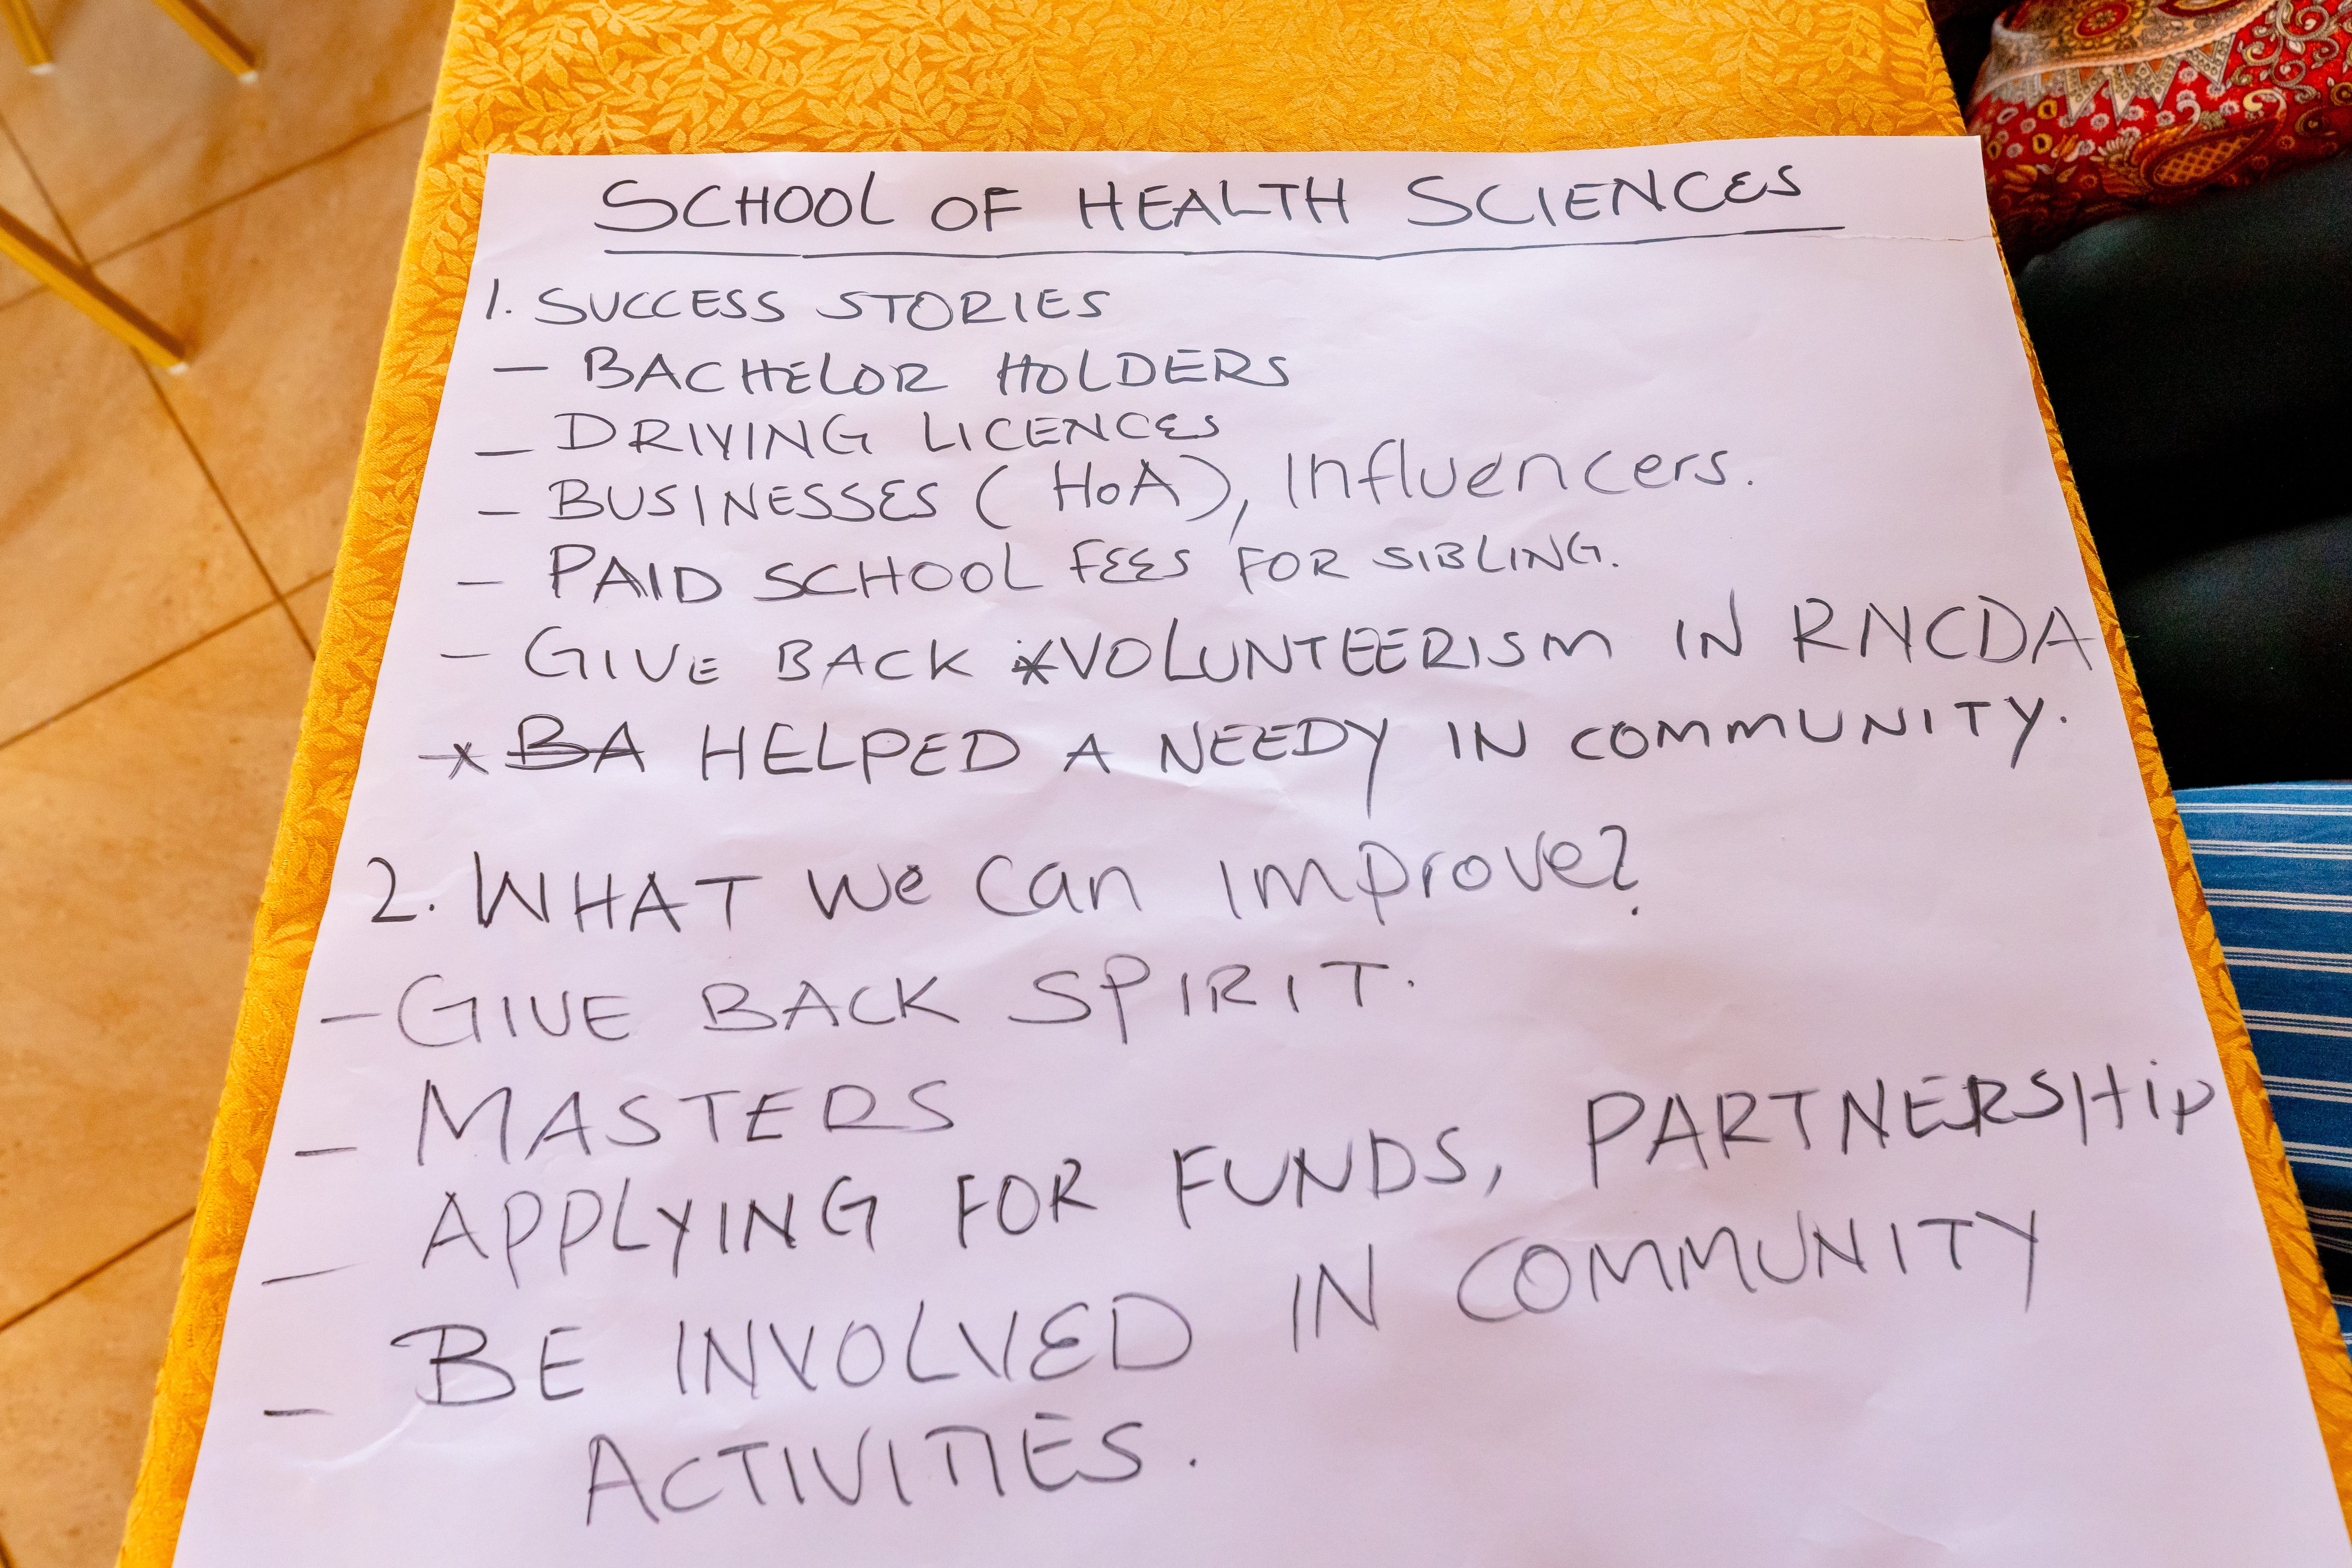 SCHOOL OF HEALTH SCIENCES
1. SUCCESS STORIES
- BACHELOR HOLDERS
- DRIVING LICENCES
- BUSINESSES (HoA), Influencers.
- PAID SCHOOL FEES FOR SIBLING.
- GIVE BACK *VOLUNTEERISM IN RNCDA
* BA HELPED A NEEDY IN COMMUNITY.
2. WHAT We Can Improve?
- GIVE BACK SPIRIT.
- MASTERS
- APPLYING FOR FUNDS, PARTNERSHip
- BE INVOLVED IN COMMUNITY
ACTIVITIES.